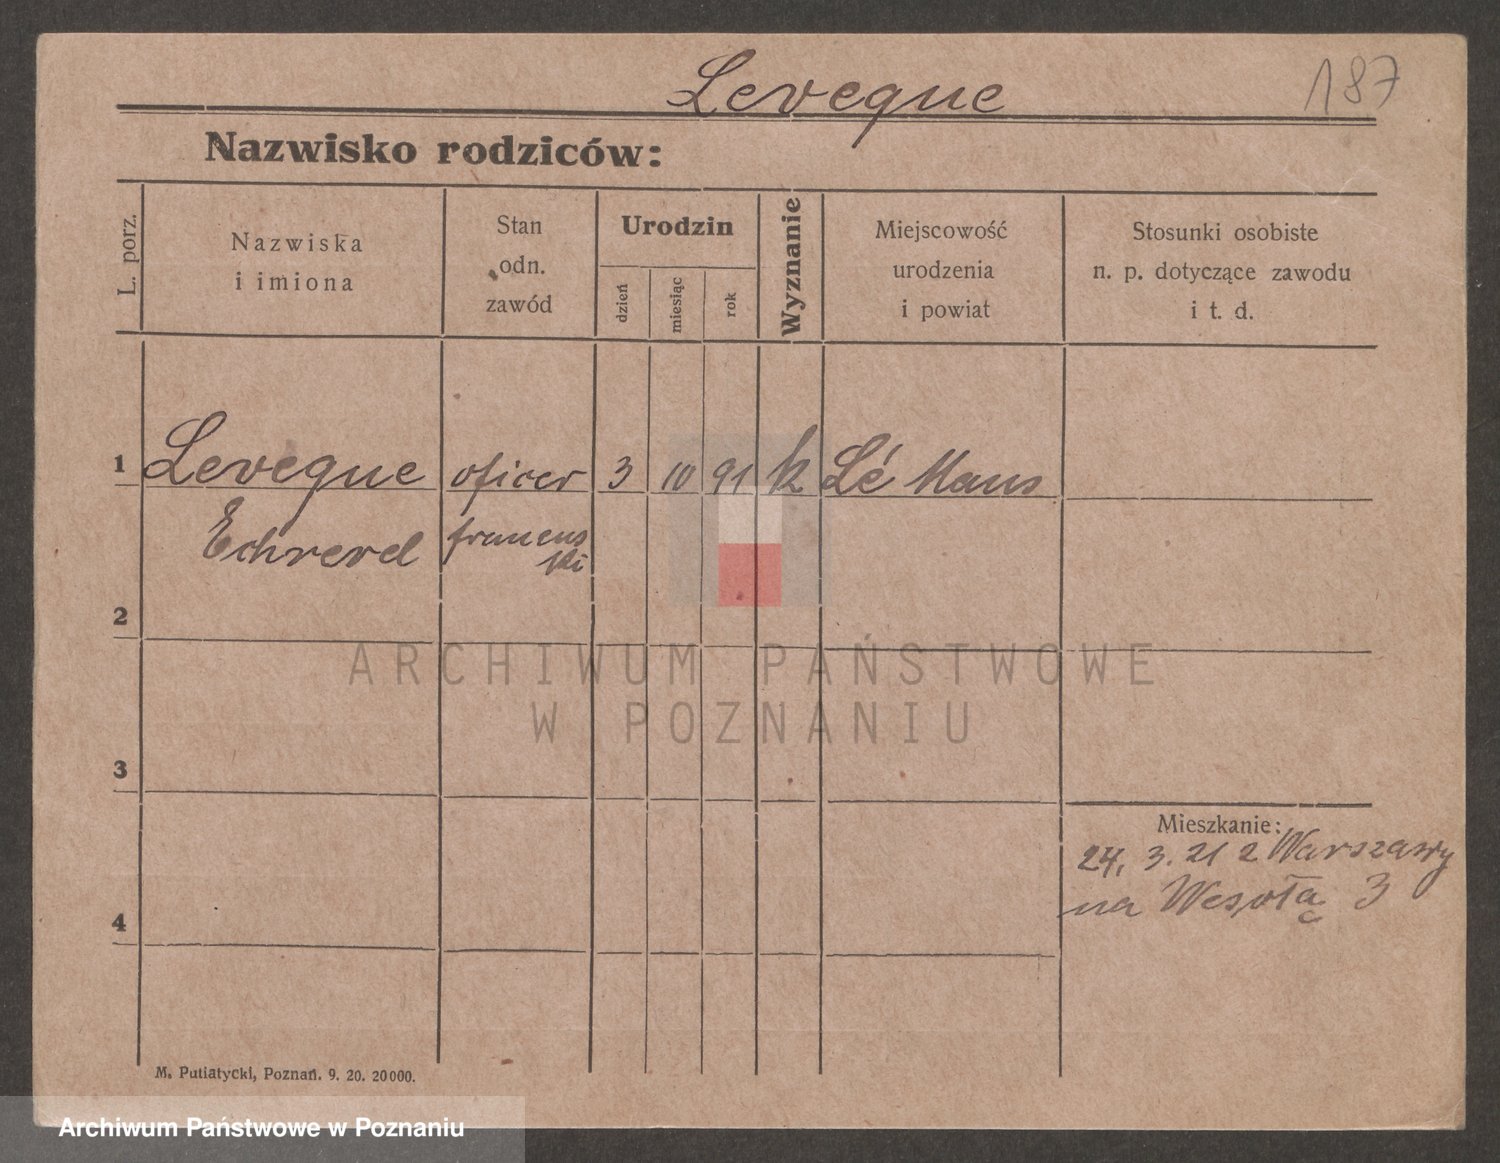 Leveque
187
Nazwisko rodziców:
L. porz.
Nazwiska
i imiona
Stan
odn.
zawód
Urodzin
dzień
miesiąc
rok
Wyznanie
Miejscowość
urodzenia
i powiat
Stosunki osobiste
n. p. dotyczące zawodu
i t. d.
1 Leveque oficer 3 10 91 k Lé Mans
francus
ski
2
3
4
ARCHIWUM PAŃSTWOWE
W POZNANIU
Mieszkanie:
24. 3. 21 z Warszawy
na Wesołą 3
M. Putiatycki, Poznań. 9. 20. 20000.
Archiwum Państwowe w Poznaniu